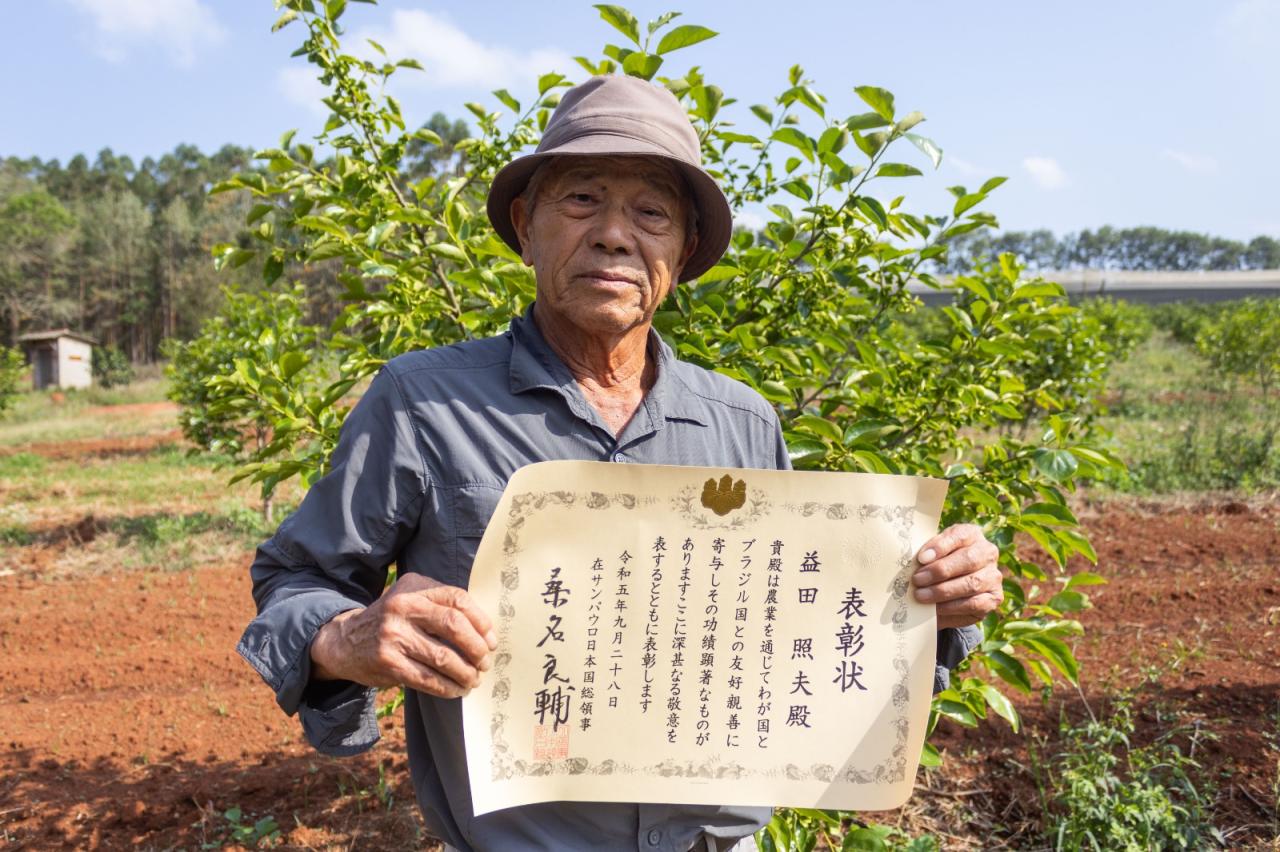 表彰状
益田 照夫殿
貴殿は農業を通じてわが国と
ブラジル国との友好親善に
寄与しその功績顕著なものが
ありますここに深甚なる敬意を
表するとともに表彰します
令和五年九月二十八日
在サンパウロ日本国総領事
桑名良輔